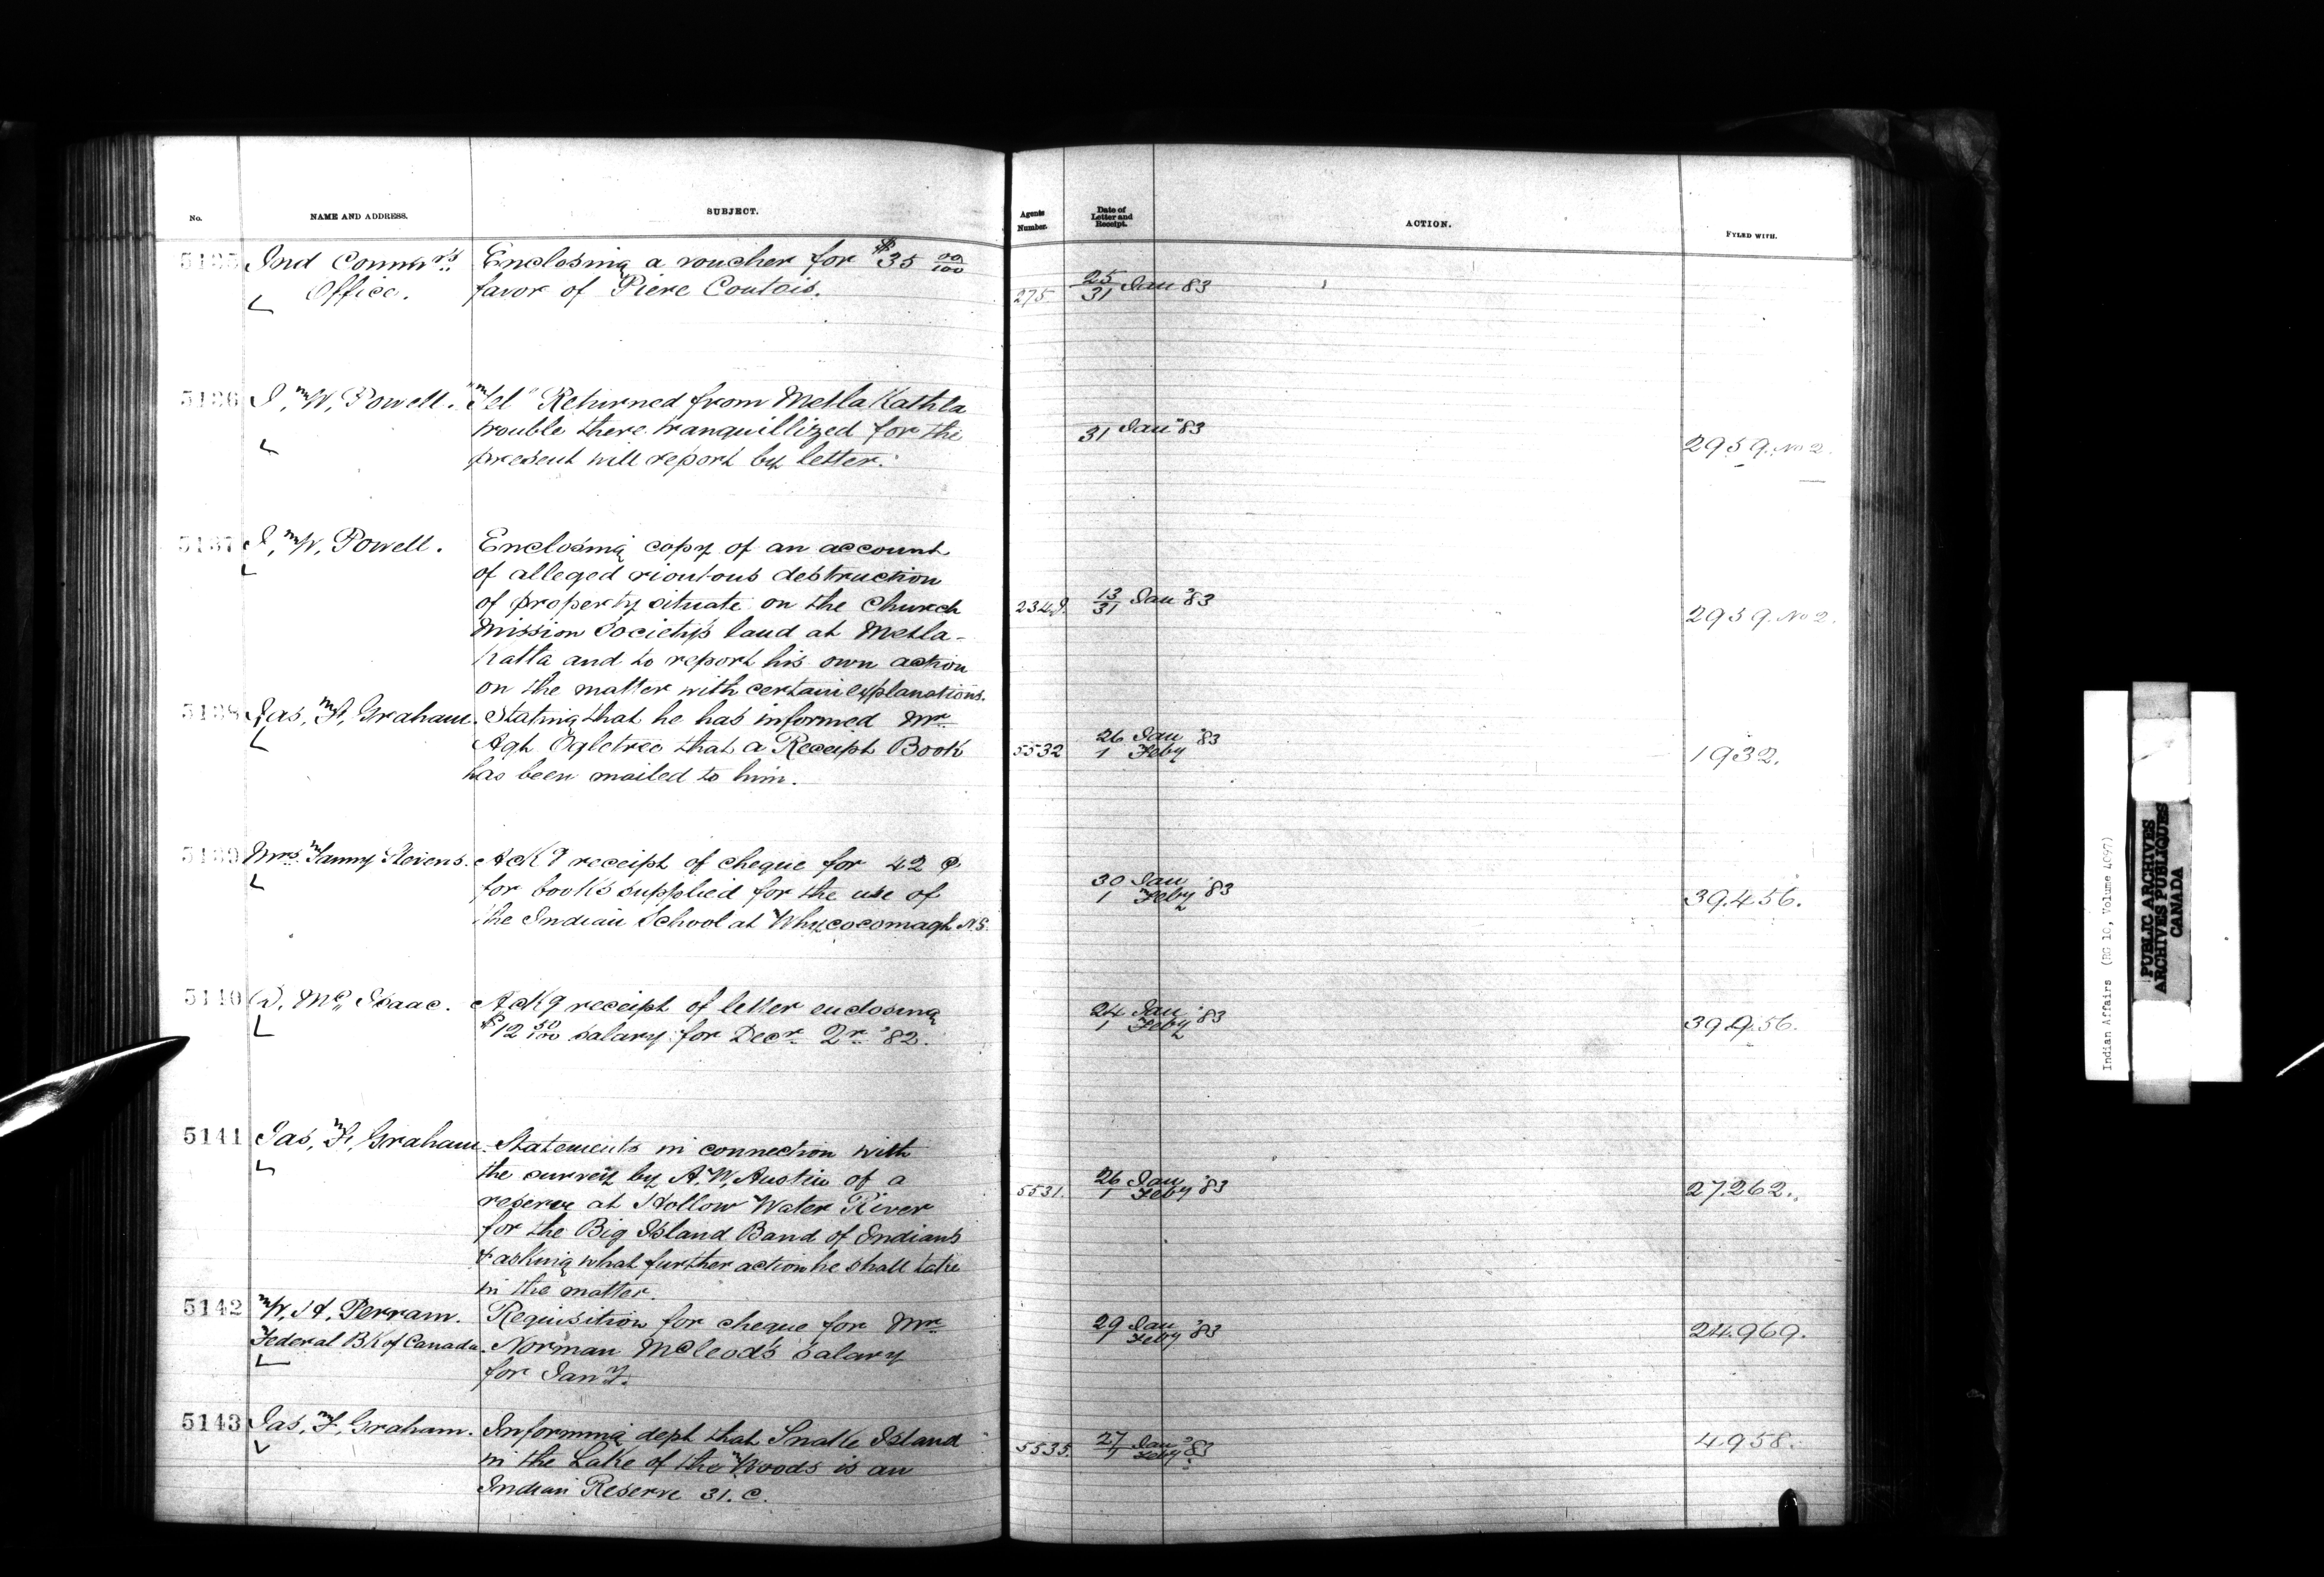 No. NAME AND ADDRESS. SUBJECT. Agents Number. Date of Letter and Receipt. ACTION. FYLED WITH.
5135 Ind Commrs Enclosing a voucher for $35 00/100
Office. favor of Piere Coutois. 275. 25/31 Jan 83
5136 I, W, Powell. "Tel" Returned from MetlaKathla
trouble there tranquillized for the 31 Jan "83
present will report by letter. 2959. No 2.
5137 I, W, Powell. Enclosing copy of an account
of alleged rioutous destruction
of property situate on the Church 234. 13/31 Jan "83 2959. No 2.
Mission Society's land at Metla-
Katla and to report his own action
on the matter with certain explanations.
5138 Jas, F, Graham. Stating that he has informed Mr
Agt Ogletree that a Receipt Book 5532 26 Jan / 1 Feby '83 1932.
has been mailed to him.
5139 Mrs. Fanny Stevens. AcKg receipt of cheque for 42 ¢
for books supplied for the use of 30 Jan / 1 Feby '83 39.456.
the Indian School at Whycocomagh N.S.
5140 D, Mc Isaac. AcKg receipt of letter enclosing 24 Jan / 1 Feby '83
$12 50/100 salary for Decr. 2r. '82. 39956.
5141 Jas, F, Graham. Statements in connection with
the survey by A. W, Austin of a
reserve at Hollow Water River 5531. 26 Jan / 1 Feby '83 27.262.
for the Big Island Band of Indians
& asking what further action he shall take
in the matter.
5142 W, H, Perram. Requisition for cheque for Mr
Federal BK of Canada. Norman McLeod's salary 29 Jan / 1 Feby '83 24.969.
for Jany.
5143 Jas, F, Graham. Informing dept that Snake Island
in the Lake of the Woods is an 5535. 27 Jan / 1 Feby '83 4958.
Indian Reserve 31. C.
Indian Affairs (RG 10, Volume 4097)
PUBLIC ARCHIVES
ARCHIVES PUBLIQUES
CANADA